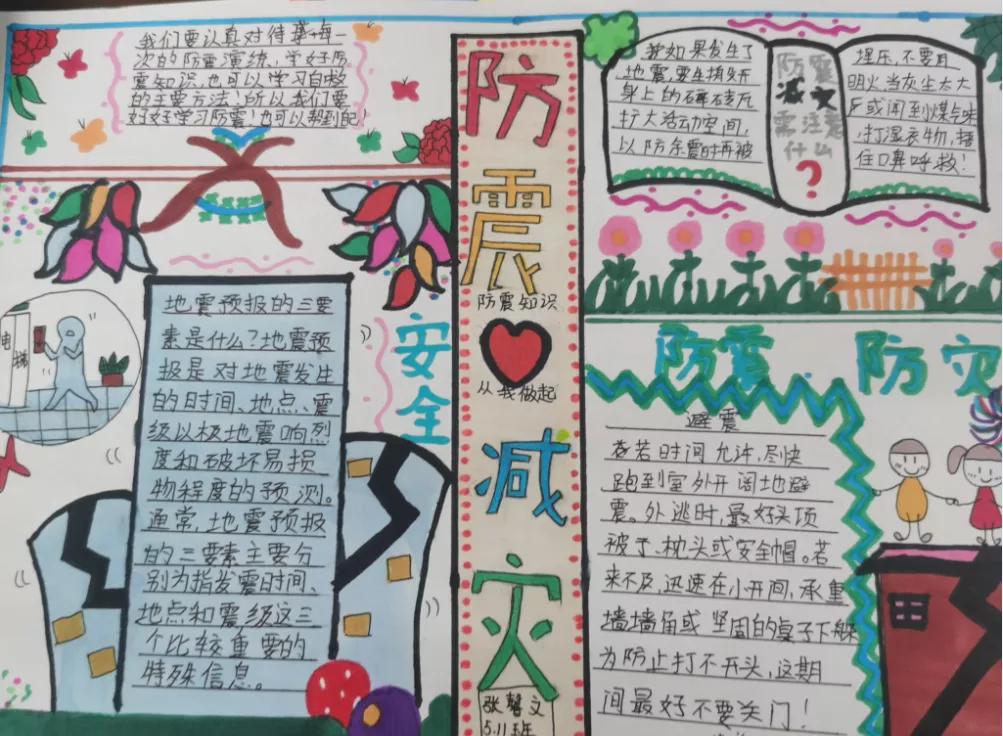 我们要认真对待每一
次的防震演练,学好防
震知识,也可以学习自救
的主要方法!所以我们要
好好学习防震!也可以帮到的!
电
梯
地震预报的三要
素是什么?地震预
报是对地震发生
的时间、地点、震
级以极地震响烈
度和破坏易损
物程度的预测。
通常,地震预报
的三要素主要分
别为指发震时间、
地点和震级这三
个比较重要的
特殊信息。
安
全
防
震
防震知识
从我做起
减
灾
张馨文
5.11班
如果发生了
地震,要
身上的碎砖瓦
扩大活动空间,
以防余震时再被
防震
减灾
需注意
什么
?
埋压,不要用
明火当灰尘太大
或闻到煤气味
,打湿衣物,捂
住口鼻呼救!
防震 防灾
避震
若时间允许,尽快
跑到室外开阔地避
震。外逃时,最好头顶
被子、枕头或安全帽。若
来不及,迅速在小开间,承重
墙墙角或坚固的桌子下躲
为防止打不开头,这期
间最好不要关门!